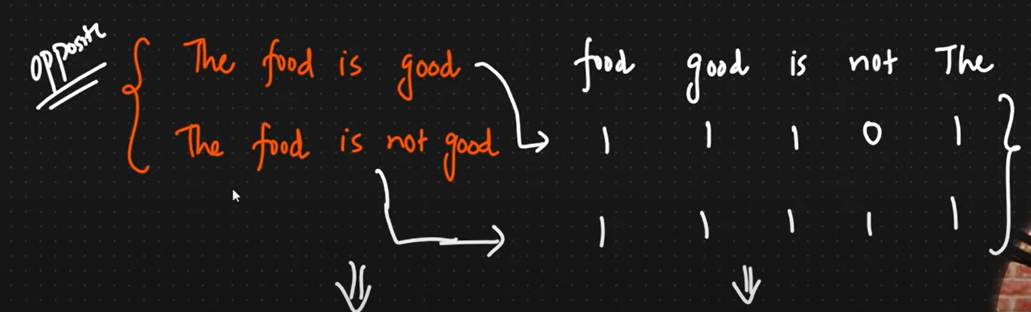 opposite
The food is good
The food is not good
food good is not The
1 1 1 0 1
1 1 1 1 1